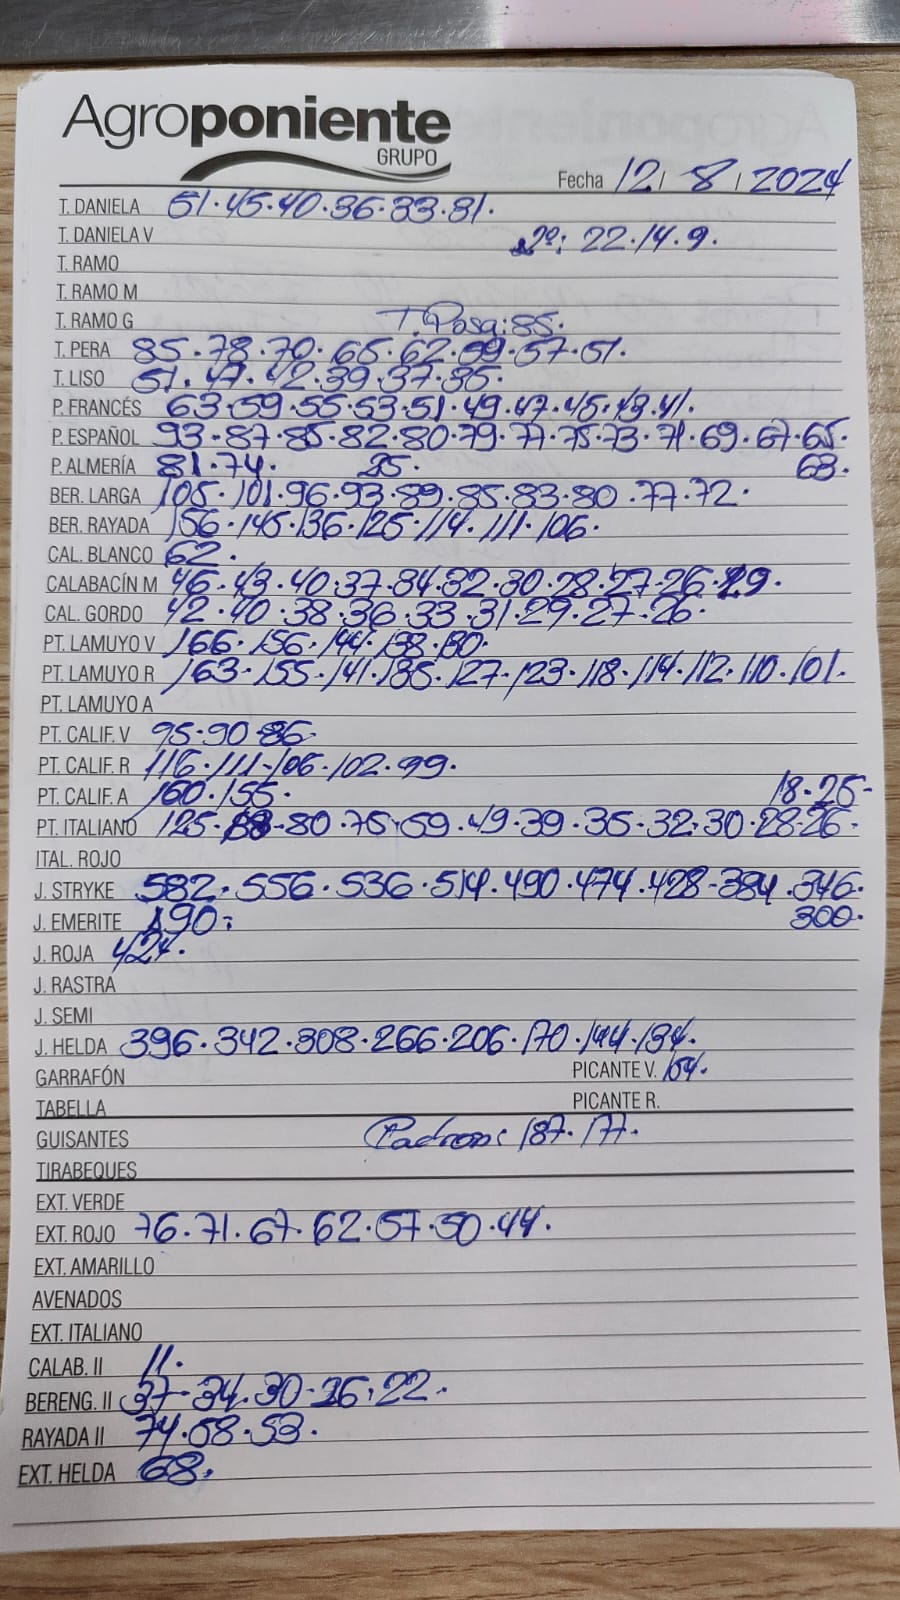 Agroponiente
GRUPO
Fecha 12 / 8 / 2024
T. DANIELA 51.45.40.36.33.31.
T. DANIELA V 2º: 22.14.9.
T. RAMO
T. RAMO M
T. RAMO G T. Rosa: 85.
T. PERA 85.78.70.65.62.59.57.51.
T. LISO 51.47.42.39.37.35.
P. FRANCÉS 63.59.55.53.51.49.47.45.43.41.
P. ESPAÑOL 93.87.85.82.80.79.77.75.73.71.69.67.65.
P. ALMERÍA 81.74. 25. 63.
BER. LARGA 105.101.96.93.89.85.83.80.77.72.
BER. RAYADA 156.145.136.125.114.111.106.
CAL. BLANCO 62.
CALABACÍN M 46.43.40.37.34.32.30.28.27.26.29.
CAL. GORDO 42.40.38.36.33.31.29.27.26.
PT. LAMUYO V 166.156.144.138.130.
PT. LAMUYO R 163.155.141.135.127.123.118.114.112.110.101.
PT. LAMUYO A
PT. CALIF. V 95.90.86.
PT. CALIF. R 116.111.106.102.99.
PT. CALIF. A 160.155. 18.25-
PT. ITALIANO 125. -80.75.59.49.39.35-32.30.28.26.
ITAL. ROJO
J. STRYKE 582.556.536.514.490.474.428-384.346.
J. EMERITE 190. 300.
J. ROJA 424.
J. RASTRA
J. SEMI
J. HELDA 396.342.308.266.206.170.144.134.
GARRAFÓN PICANTE V. 154.
TABELLA PICANTE R.
GUISANTES Padron: 187.177.
TIRABEQUES
EXT. VERDE
EXT. ROJO 76.71.67.62.57.50.44.
EXT. AMARILLO
AVENADOS
EXT. ITALIANO
CALAB. II 11.
BERENG. II 37-34.30-26.22.
RAYADA II 74.58.53.
EXT. HELDA 68.